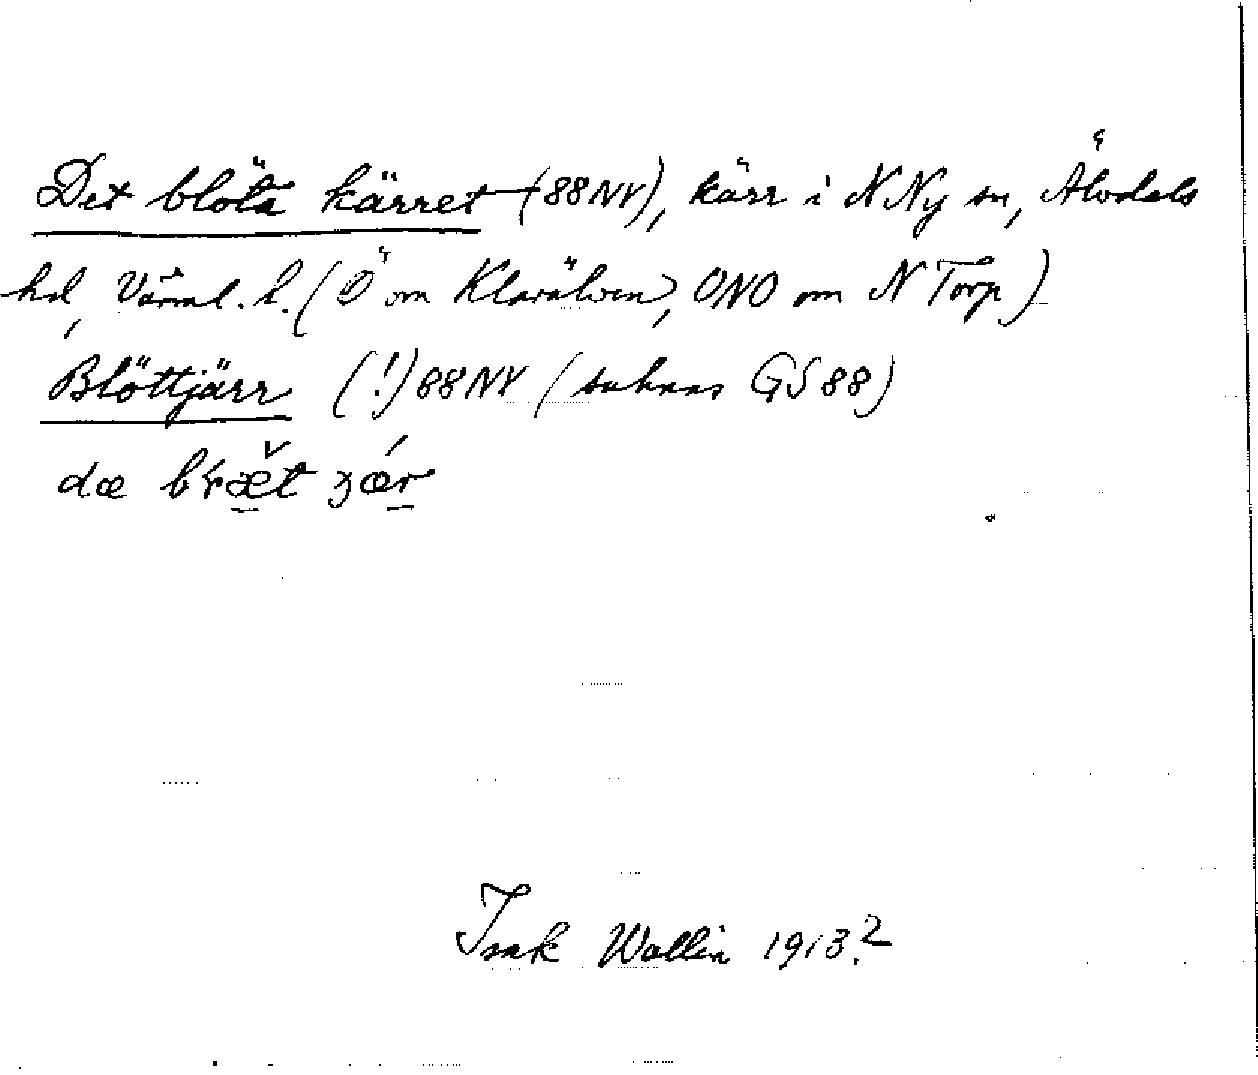 Det blöta kärret (88NV), kärr i N Ny sn, Älvdals
hd, Värml. l. (Ö om Klarälven, ONO om N Torp)
Blöttjärr (!) 88NV (saknas GS88)
dæ
Isak Wallin 1913.2